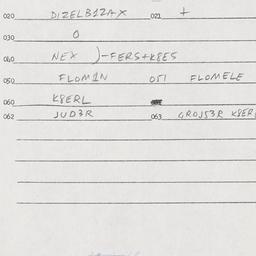 020 DIZELB1ZAX 021 +
030 O
040 NEX )-FERS+K8ES
050 FLOM1N 051 FLOMELE
060 K8ERL
062 JUD3R 063 GROJS3R K8ER